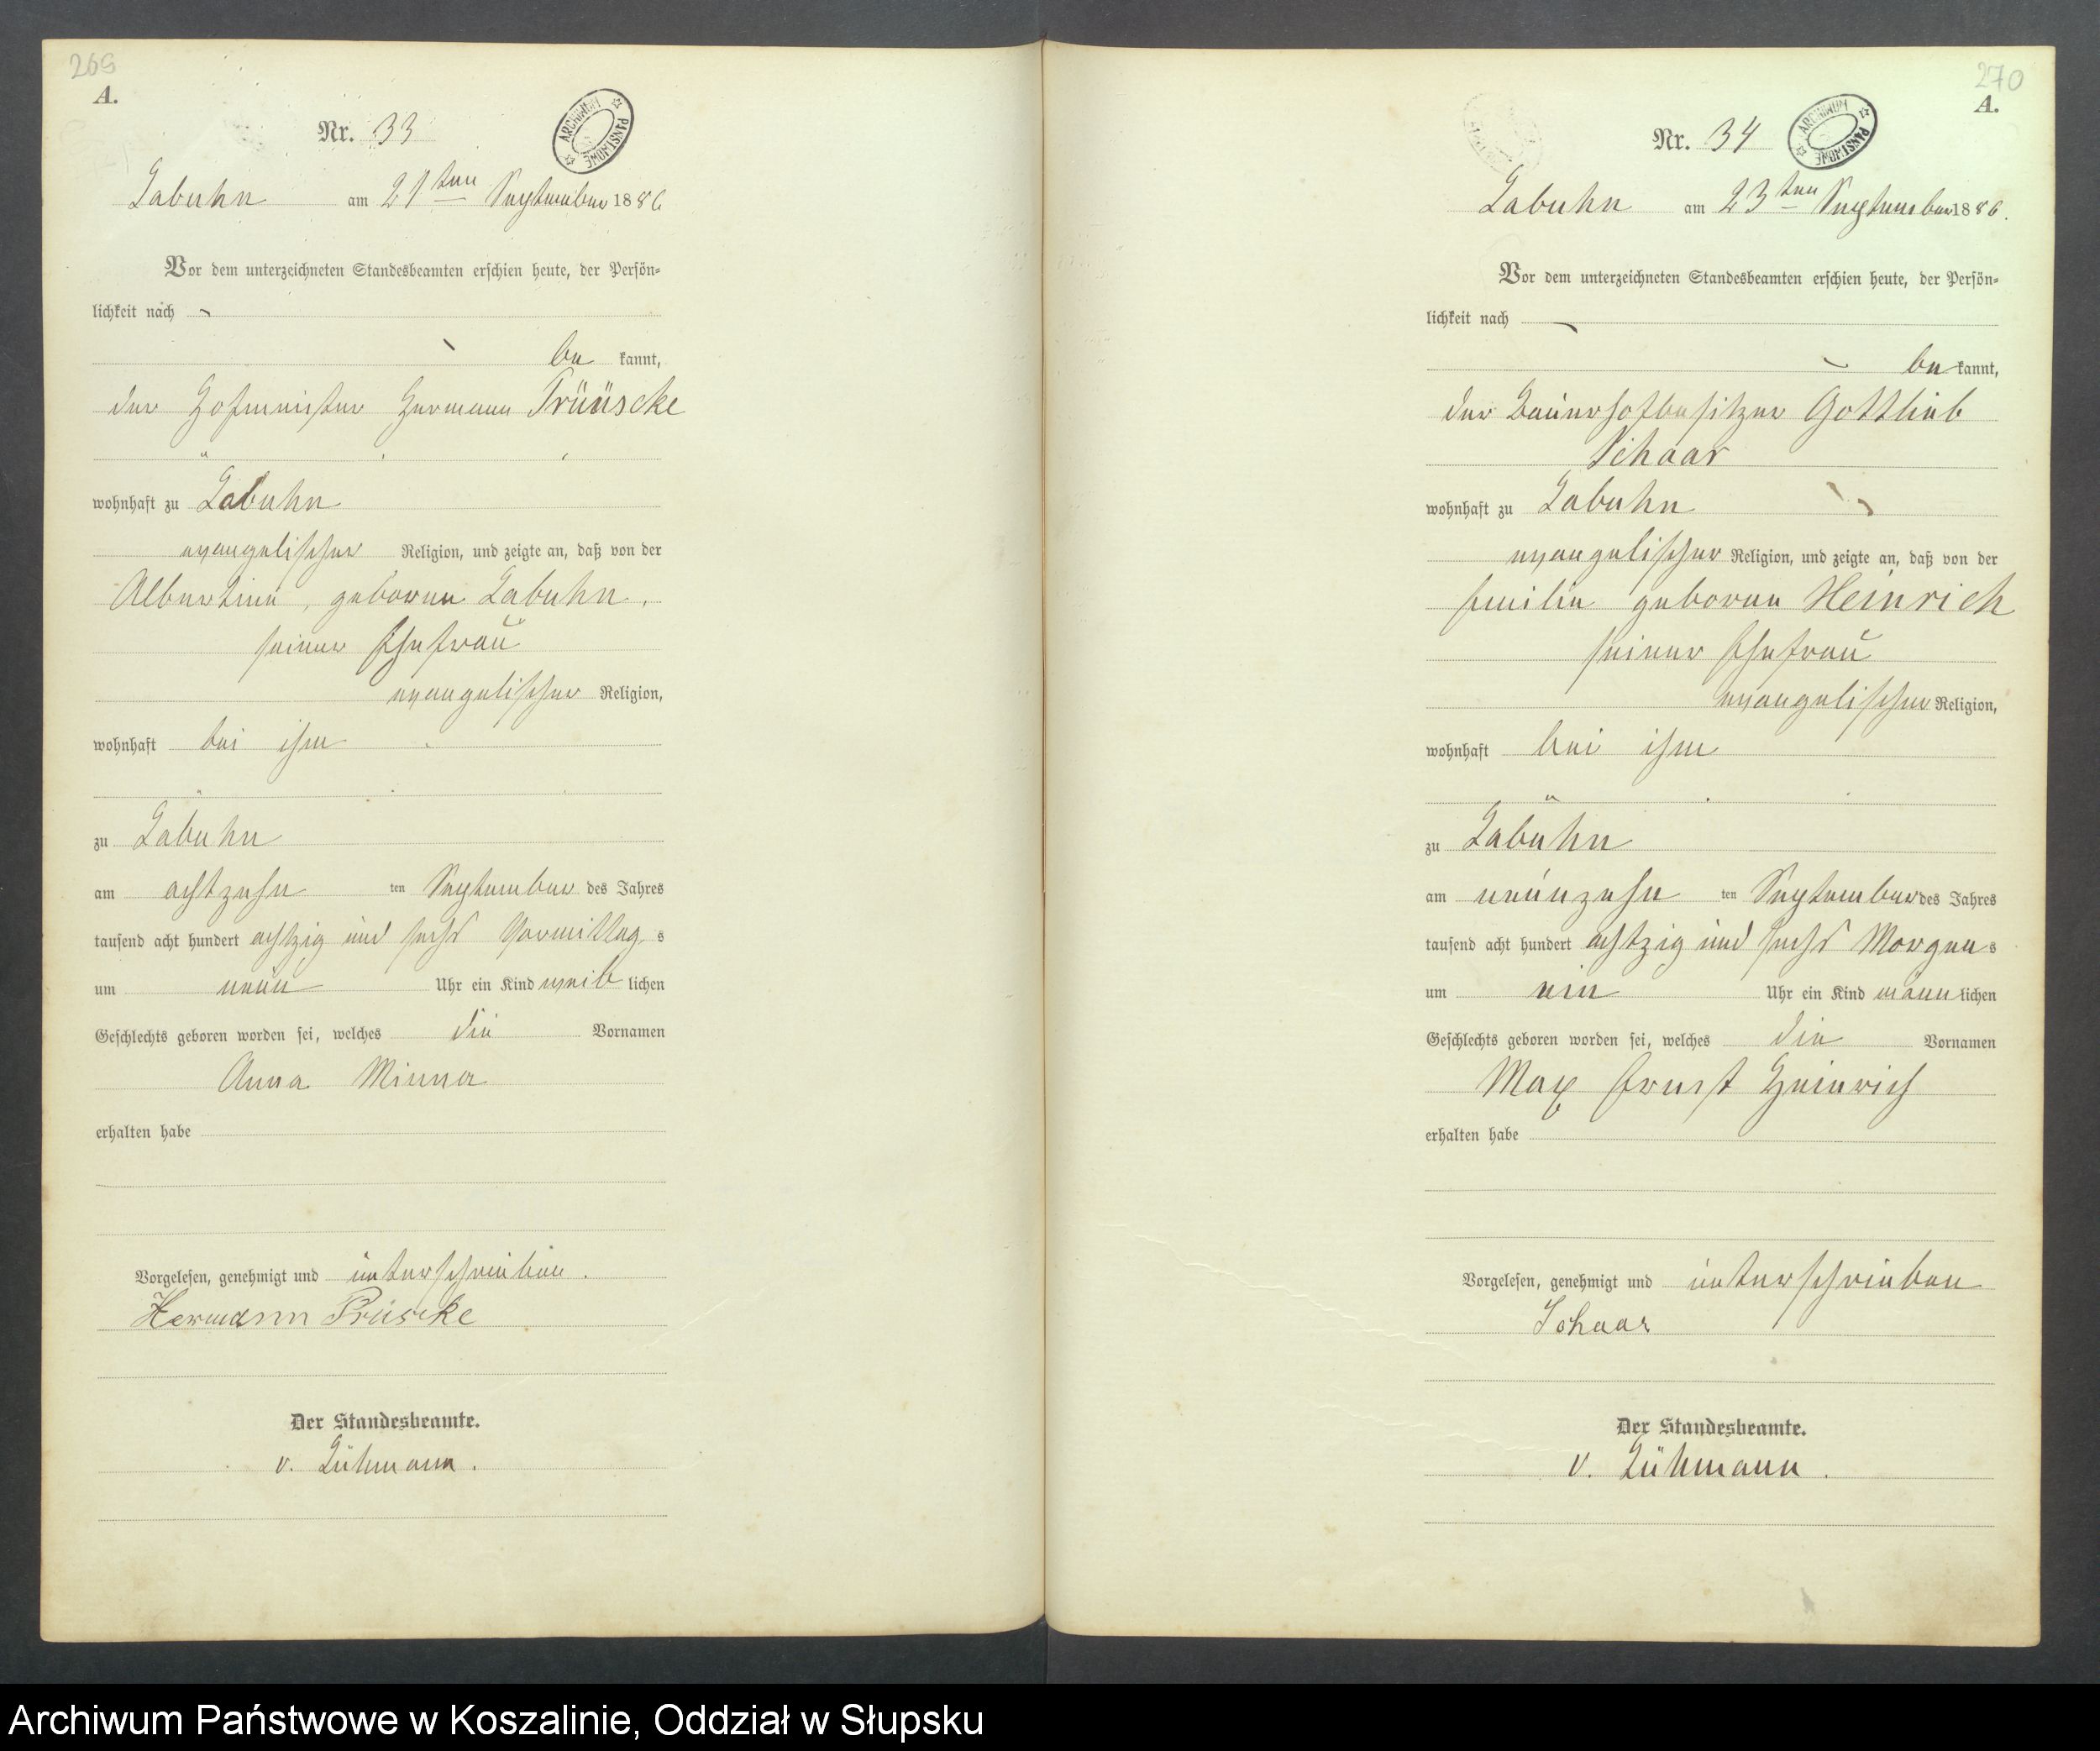 269
A.
Nr. 33
ARCHIWUM PAŃSTWOWE
Labuhn am 21ten September 1886
Vor dem unterzeichneten Standesbeamten erschien heute, der Persön-
lichkeit nach
be kannt,
der Hofmeister Hermann
wohnhaft zu Labuhn
evangelischer Religion, und zeigte an, daß von der
Albertine, geborene Labuhn.
seiner Ehefrau
evangelischer Religion,
wohnhaft bei ihm
zu Labuhn
am achtzehn ten September des Jahres
tausend acht hundert achtzig und sechs Vormittag s
um neun Uhr ein Kind weib lichen
Geschlechts geboren worden sei, welches die Vornamen
Anna Minna
erhalten habe
Vorgelesen, genehmigt und unterschrieben.
Hermann Prüscke
Der Standesbeamte.
v. Lühmann.
270
A.
Nr. 34
ARCHIWUM PAŃSTWOWE
Labuhn am 23ten September 1886.
Vor dem unterzeichneten Standesbeamten erschien heute, der Persön-
lichkeit nach
be kannt,
der Bauerhofbesitzer Gottlieb
Schaar
wohnhaft zu Labuhn
evangelischer Religion, und zeigte an, daß von der
Emilie geborene Heinrich
seiner Ehefrau
evangelischer Religion,
wohnhaft bei ihm
zu Labuhn
am neunzehn ten September des Jahres
tausend acht hundert achtzig und sechs Morgen s
um ein Uhr ein Kind männ lichen
Geschlechts geboren worden sei, welches die Vornamen
Max Ernst Heinrich
erhalten habe
Vorgelesen, genehmigt und unterschrieben
Schaar
Der Standesbeamte.
v. Lühmann.
Archiwum Państwowe w Koszalinie, Oddział w Słupsku